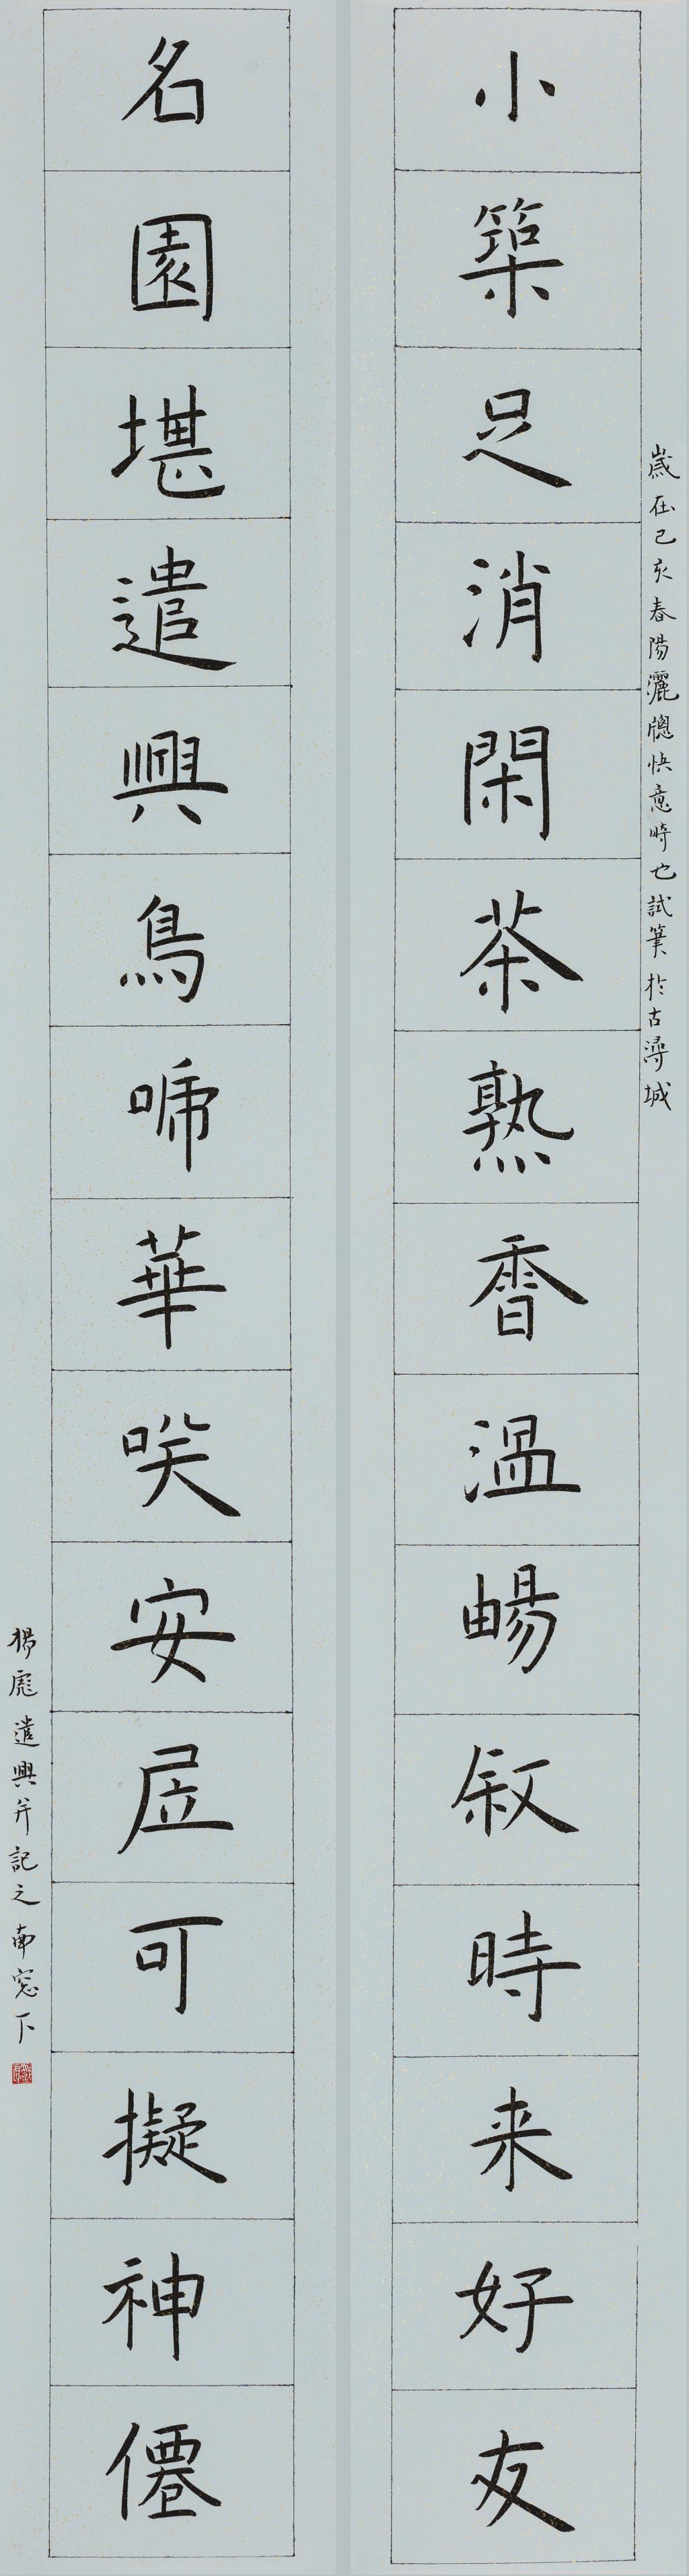 歲在己亥春陽灑牕快意時也試筆於古潯城
小築足消閑茶熟香溫暢叙時来好友
名園堪遣興鳥啼華咲安居可擬神僊
楊彪遣興并記之南窓下